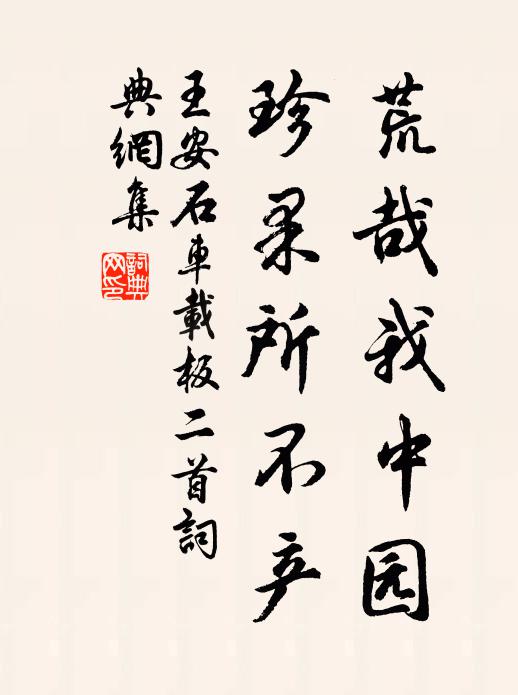 荒哉我中园
珍果所不产
王安石車載板二首詞
典網集
詞典网印